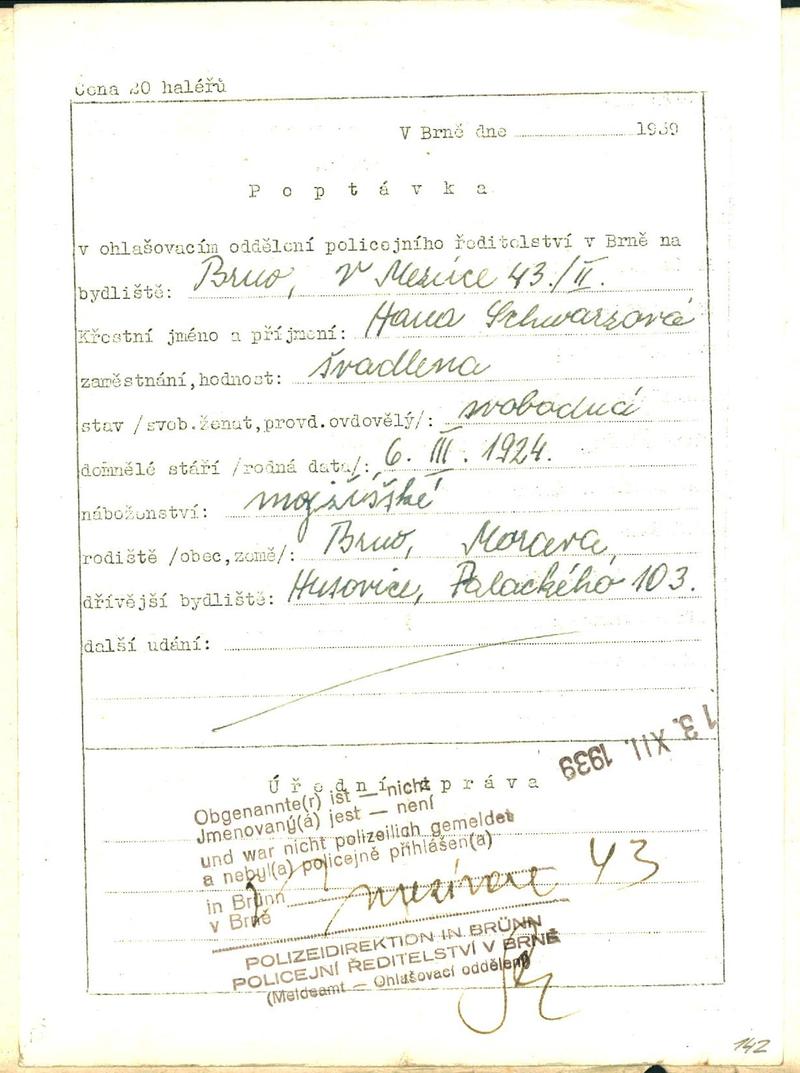 Cena 20 haléřů
V Brně dne 1939
Poptávka
v ohlašovacím oddělení policejního ředitelství v Brně na
bydliště: Brno, V Mezírce 43./II.
Křestní jméno a příjmení: Hana Schwarzová
zaměstnání,hodnost: švadlena
stav /svob.ženat,provd.ovdovělý/: svobodná
domnělé stáří /rodná data/: 6. III. 1924.
náboženství: mojžíšské
rodiště /obec,země/: Brno, Morava,
dřívější bydliště: Husovice, Palackého 103.
další udání:
13. XII. 1939
Úřední zpráva
Obgenannte(r) ist — nicht
Jmenovaný(á) jest — není
und war nicht polizeilich gemeldet
a nebyl(a) policejně přihlášen(a)
in Brünn
v Brně
43
POLIZEIDIREKTION IN BRÜNN
POLICEJNÍ ŘEDITELSTVÍ V BRNĚ
(Meldeamt — Ohlašovací oddělení)
142